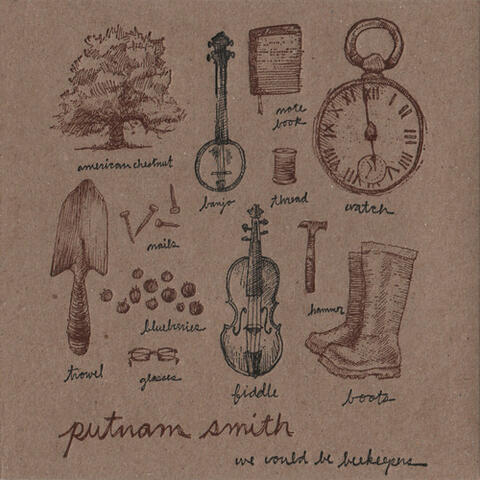 american chestnut
banjo
note
book
thread
watch
nails
blueberries
hammer
trowel
glasses
fiddle
boots
putnam smith
we would be beekeepers